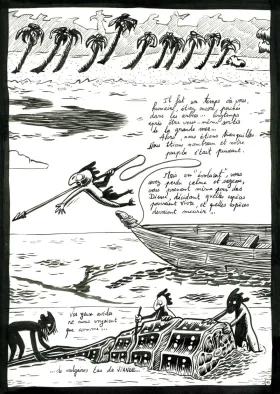 Il fut un temps où vous,
humains, étiez nos , perchés
dans les arbres... longtemps
après être vous-même sortis
de la grande mer...
Alors, nous étions tranquilles
Nous étions nombreux et notre
peuple était puissant.
Mais en "évoluant", vous
avez perdu calme et sagesse,
vous prenant même pour des
Dieux, décidant quelles espèces
pouvaient vivre, et quelles espèces
devaient mourir...
Vos yeux avides
ne nous voyaient
que comme...
...de vulgaires tas de VIANDE...